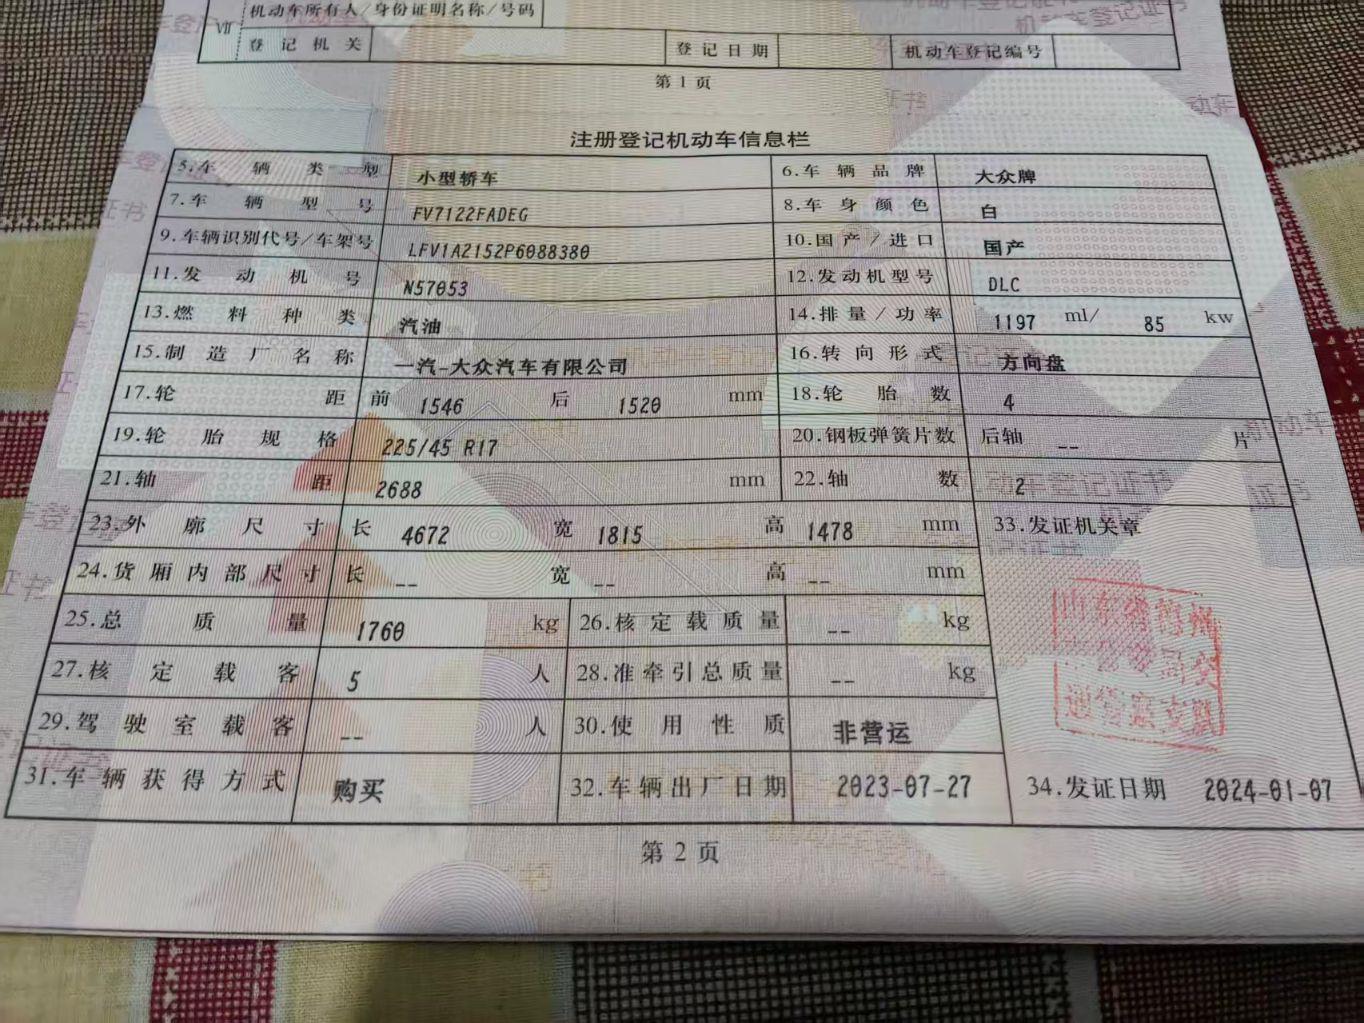 Ⅶ 机动车所有人/身份证明名称/号码
登记机关 登记日期 机动车登记编号
第1页
注册登记机动车信息栏
5.车辆类型 小型轿车 6.车辆品牌 大众牌
7.车辆型号 FV7122FADEG 8.车身颜色 白
9.车辆识别代号/车架号 LFV1A2152P6088380 10.国产/进口 国产
11.发动机号 N57053 12.发动机型号 DLC
13.燃料种类 汽油 14.排量/功率 1197 ml/ 85 kw
15.制造厂名称 一汽-大众汽车有限公司 16.转向形式 方向盘
17.轮距 前 1546 后 1520 mm 18.轮胎数 4
19.轮胎规格 225/45 R17 20.钢板弹簧片数 后轴 -- 片
21.轴距 2688 mm 22.轴数 2
23.外廓尺寸 长 4672 宽 1815 高 1478 mm 33.发证机关章
24.货厢内部尺寸 长 -- 宽 -- 高 -- mm
25.总质量 1760 kg 26.核定载质量 -- kg
27.核定载客 5 人 28.准牵引总质量 -- kg
29.驾驶室载客 -- 人 30.使用性质 非营运
31.车辆获得方式 购买 32.车辆出厂日期 2023-07-27 34.发证日期 2024-01-07
山东省德州
公安局交
通警察支队
第2页